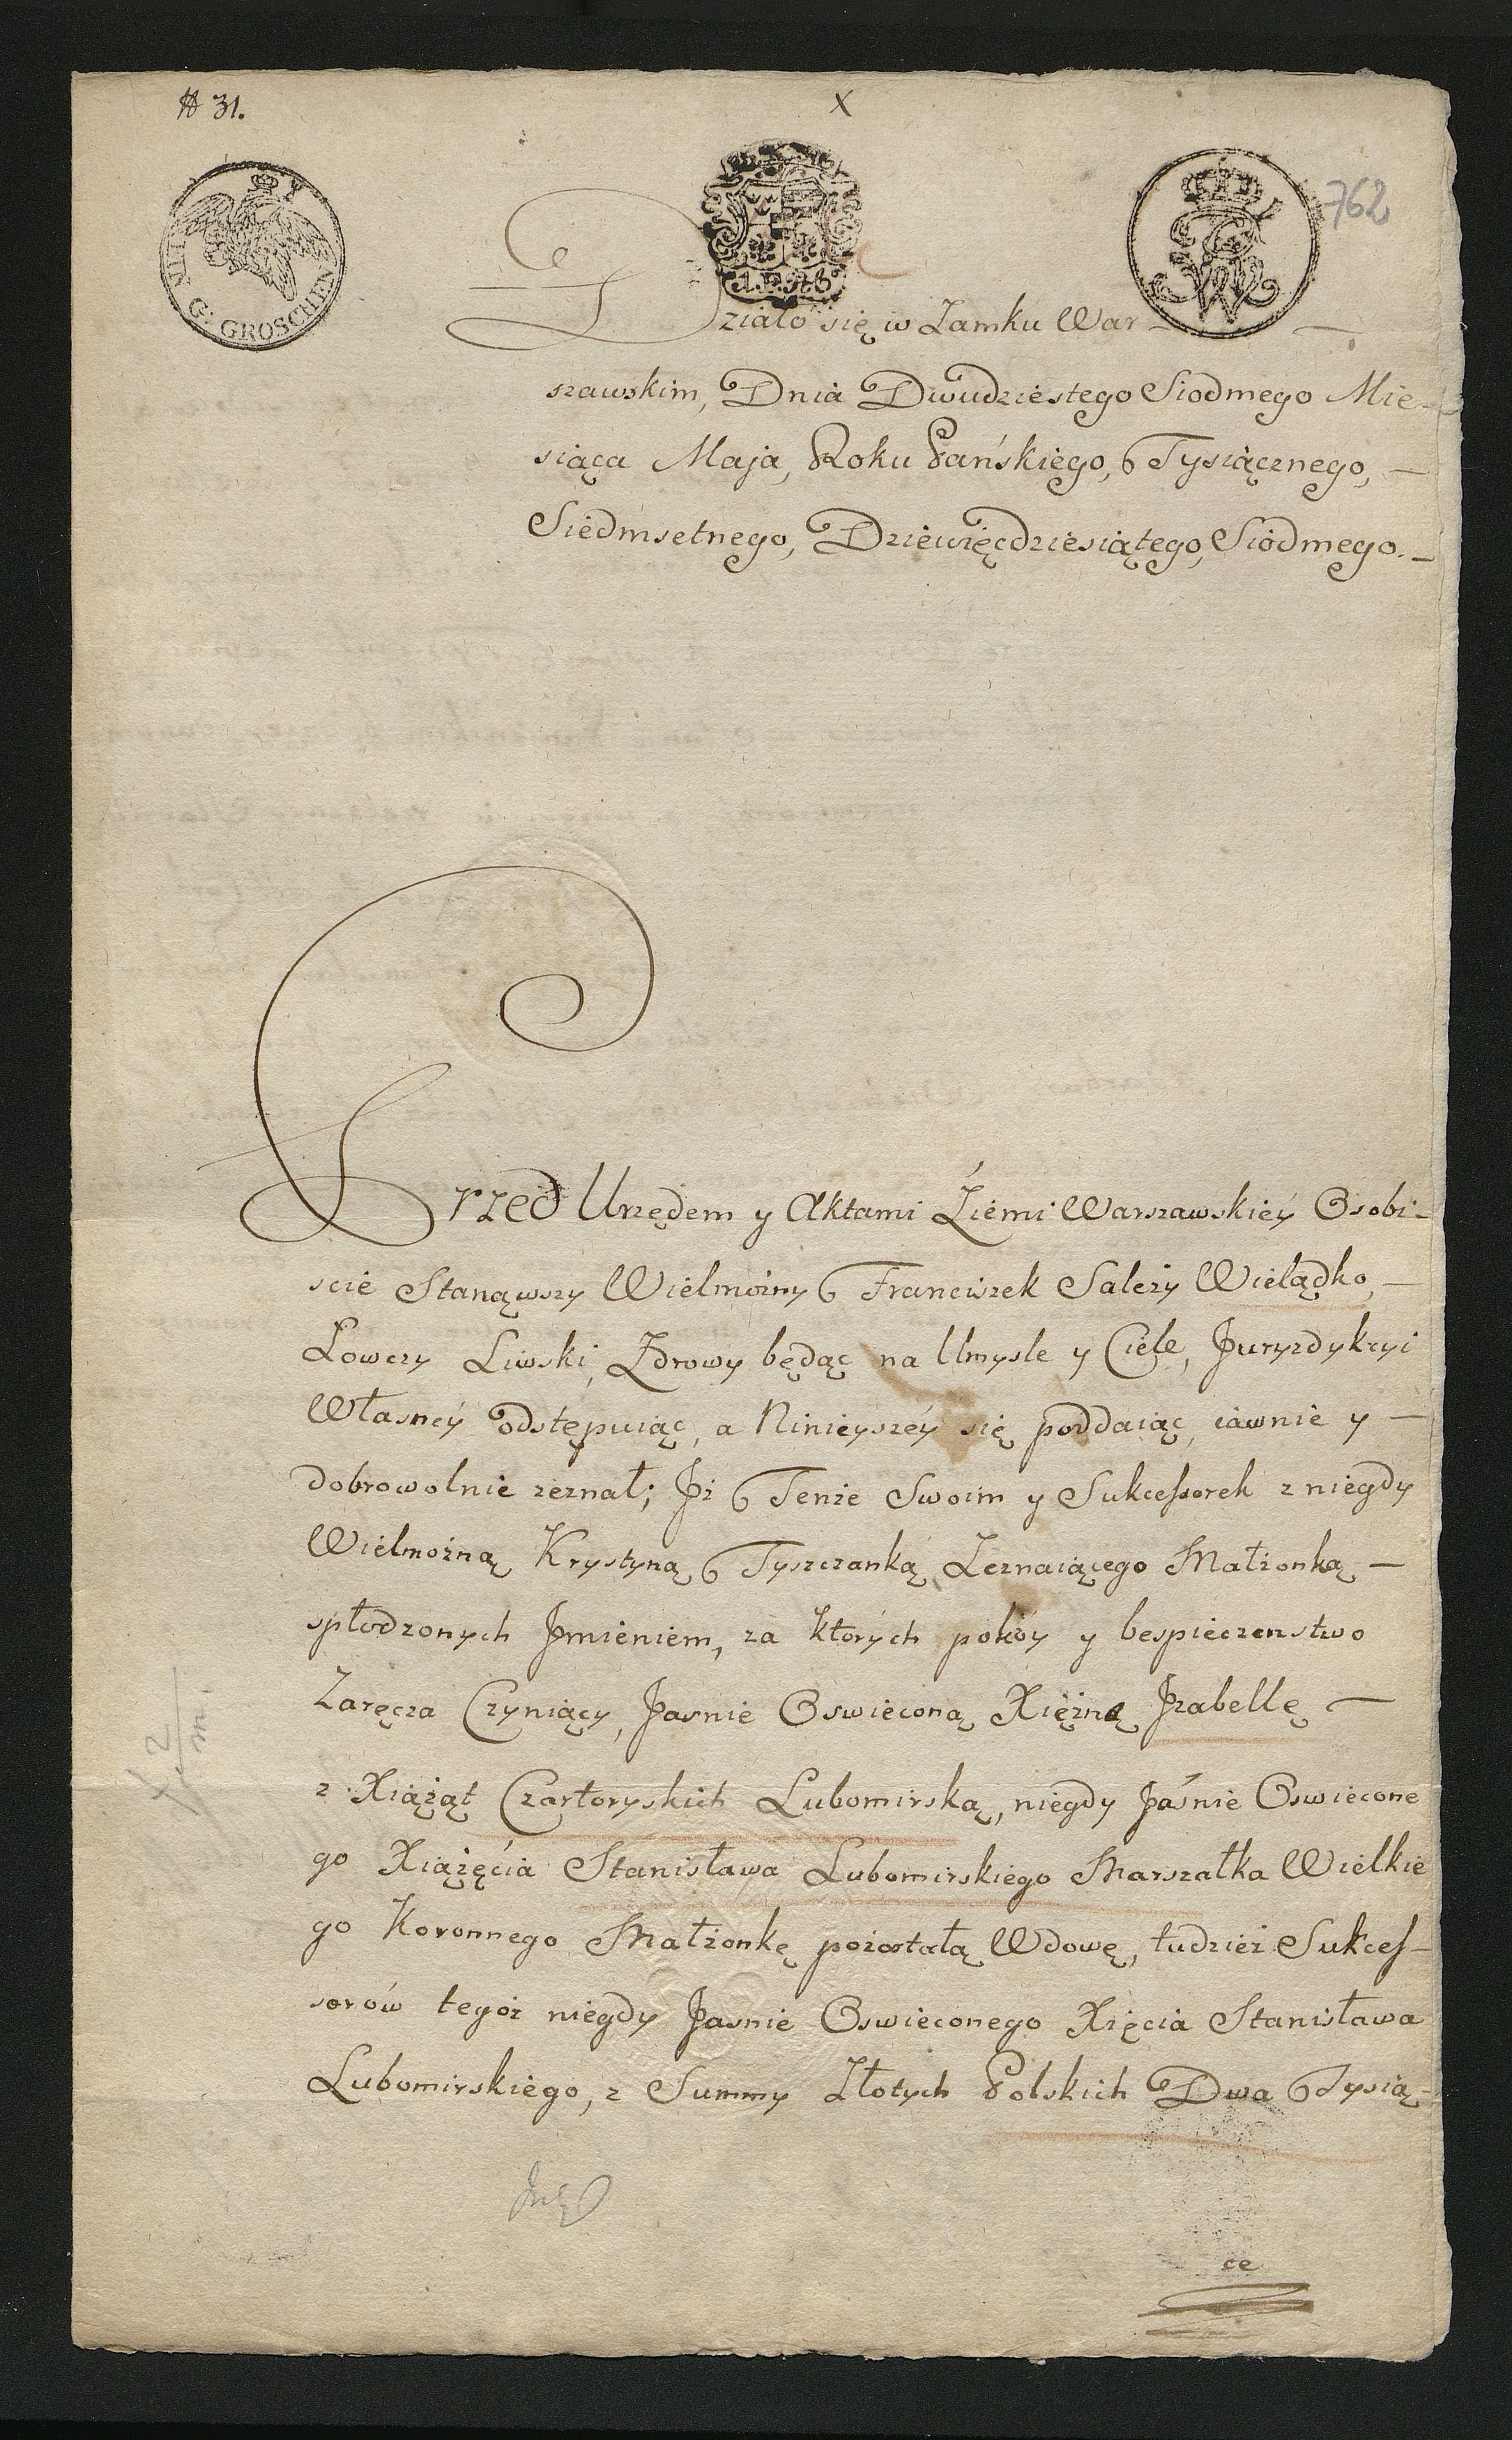 # 31.
X
762
VIII G. GROSCHEN
Działo się w Zamku War-
szawskim, Dnia Dwudziestego Siodmego Mie-
siąca Maja, Roku Pańskiego, Tysiącznego,
Siedmsetnego, Dziewięcdziesiątego, Siódmego.
Przed Urzędem y Aktami Ziemi Warszawskiéy Osobi-
scie Stanąwszy Wielmożny Franciszek Salezy Wielądko,
Łowczy Liwski, Zdrowy będąc na Umysle y Ciele, Juryzdykcyi
Własnéy odstępuiąc, a Ninieyszéy się poddaiąc, iawnie y
dobrowolnie zeznał; Jż Tenże Swoim y Sukcessorek z niegdy
Wielmożną Krystyną Tyszczanką Zeznaiącego Małżonką
spłodzonych Jmieniem, za których pokóy y bespieczenstwo
Zaręcza Czyniący, Jasnie Oswieconą Xiężnę Jzabellę
z Xiążąt Czartoryskich Lubomirską, niegdy Jaśnie Oswiecone
go Xiążęćia Stanisława Lubomirskiego Marszałka Wielkie
go Koronnego Małżonkę pozostałą Wdowę, tudzież Sukces-
sorów tegoż niegdy Jasnie Oswieconego Xięcia Stanisława
Lubomirskiego, z Summy Złotych Polskich Dwa Tysią-
ce